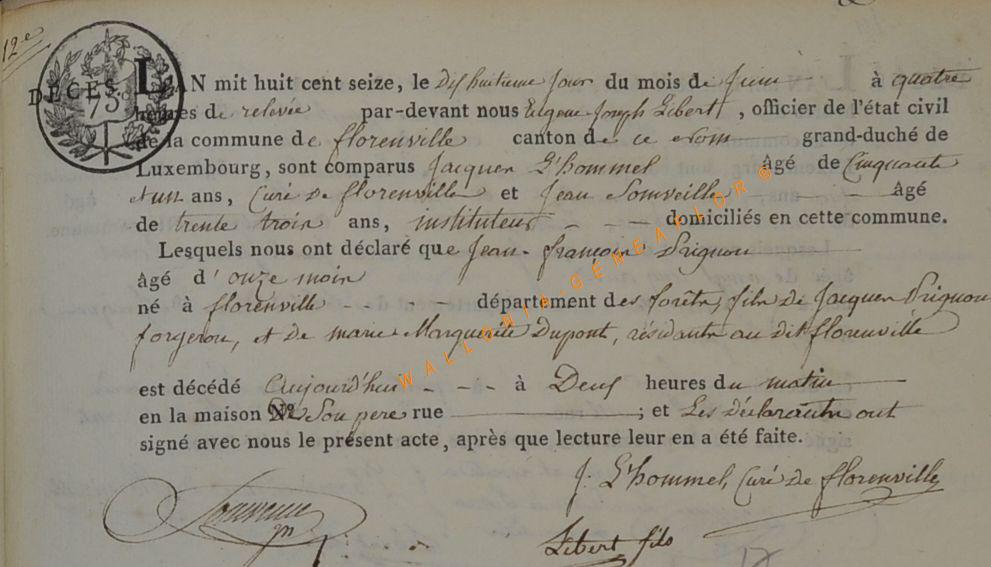 12e
DÉCÈS. L'AN mil huit cent seize, le dix huitieme jour du mois de juin à quatre
75
heures de relevée par-devant nous Eugene Joseph Libert, officier de l'état civil
de la commune de florenville canton de ce nom grand-duché de
Luxembourg, sont comparus Jacques L'hommel âgé de Cinquante
et un ans, Curé de florenville et Jean Somveille âgé
de trente trois ans, instituteur domiciliés en cette commune.
Lesquels nous ont déclaré que Jean-françois Prignon
âgé d'onze mois
né à florenville département des forêts, fils de Jacques Prignon
forgeron, et de marie Marguerite Dupont, résidants au dit florenville
est décédé Aujourd'hui à Deux heures du matin
en la maison De Son pere rue ; et Les déclarants ont
signé avec nous le présent acte, après que lecture leur en a été faite.
J. L'hommel, Curé de florenville
Libert fils
WALLONIA GENEALOR ©